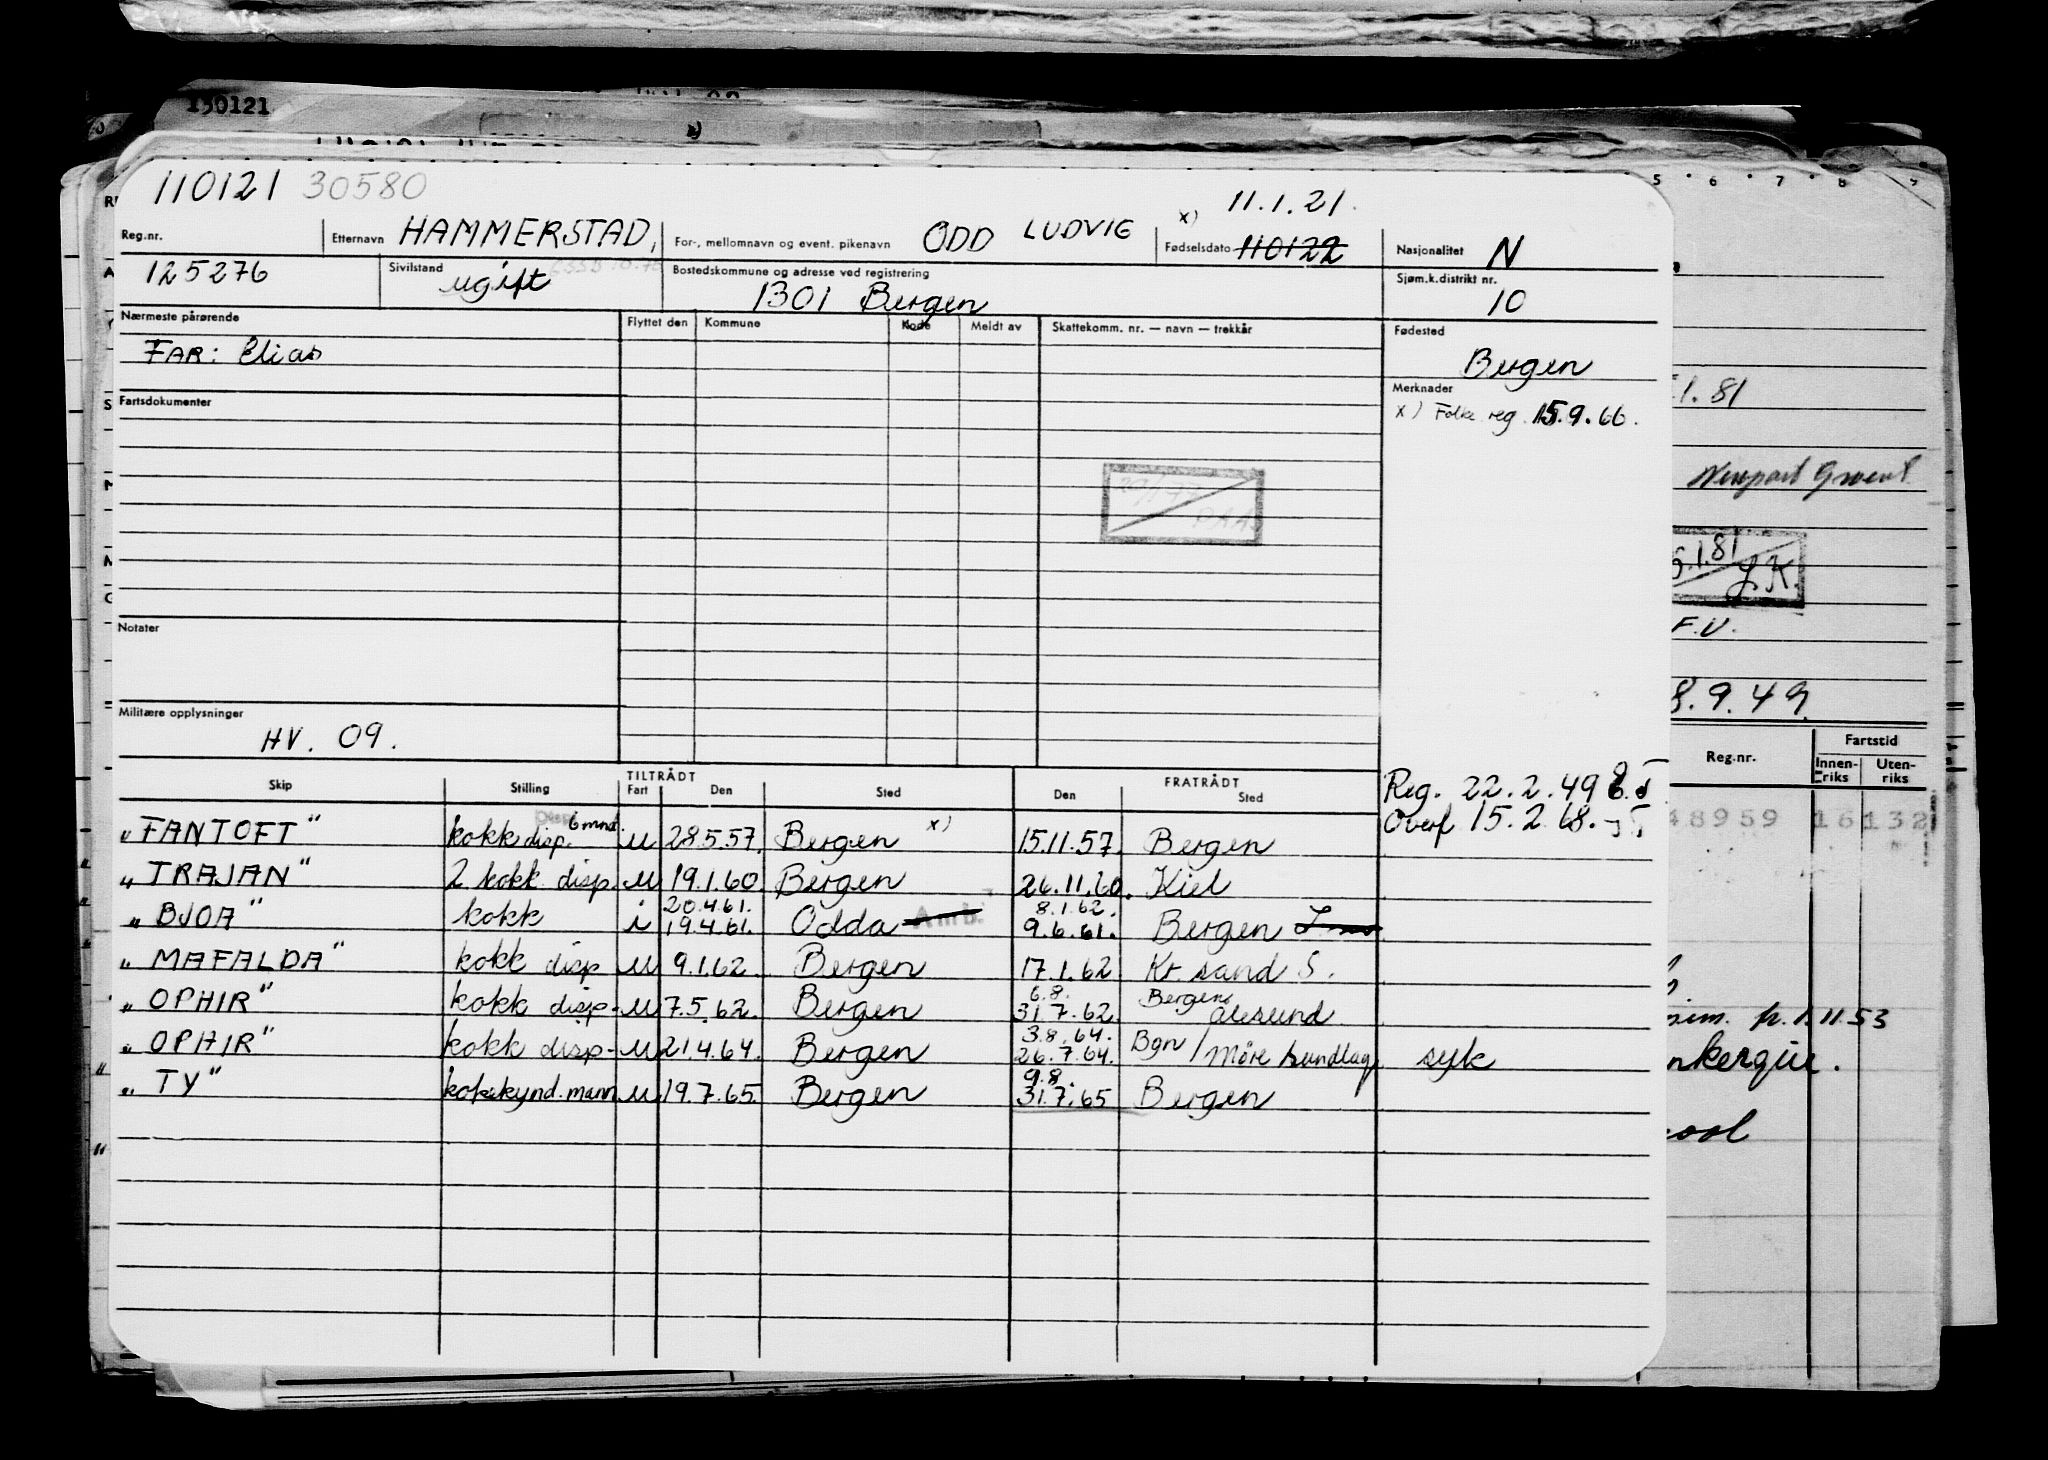 150121
110121 30580
11.1.21.
Reg.nr. Etternavn HAMMERSTAD, For-, mellomnavn og event. pikenavn ODD LUDVIG x) Fødselsdato 110122 Nasjonalitet N
125276 Sivilstand ugift Bostedskommune og adresse ved registrering 1301 Bergen Sjøm.k.distrikt nr. 10
Nærmeste pårørende Flyttet den Kommune Kode Meldt av Skattekomm. nr. — navn — trekkår Fødested
FAR: Elias Bergen
Merknader
Fartsdokumenter x) Folke reg. 15.9.66.
Notater
Militære opplysninger
HV. 09.
Skip Stilling TILTRÅDT Fart Den Sted FRATRÅDT Den Sted
Reg. 22.2.49
Overf. 15.2.68.
"FANTOFT" kokk disp. 6 mnd. u 28.5.57. Bergen x) 15.11.57. Bergen
"TRAJAN" 2 kokk disp. u 19.1.60. Bergen 26.11.60. Kiel
20.4.61. 8.1.62.
"BJOA" kokk i 19.4.61. Odda Amb. 9.6.61. Bergen
"MAFALDA" kokk disp u 9.1.62. Bergen 17.1.62. Kr. sand S.
6.8. Bergen
"OPHIR" kokk disp. u 7.5.62. Bergen 31.7.62. Ålesund
3.8.64. Bgn
"OPHIR" kokk disp. u 21.4.64. Bergen 26.7.64. / Möre sundlag syk
9.8.
"TY" kokskynd.mann u 19.7.65. Bergen 31.7.65 Bergen
5 6 7 8 9
1.81
Newport
6.1.81
L.K.
F.V.
8.9.49
Reg.nr. Fartstid
Innen-riks Uten-riks
48959 16 132
1.11.53
nkerque.
ool